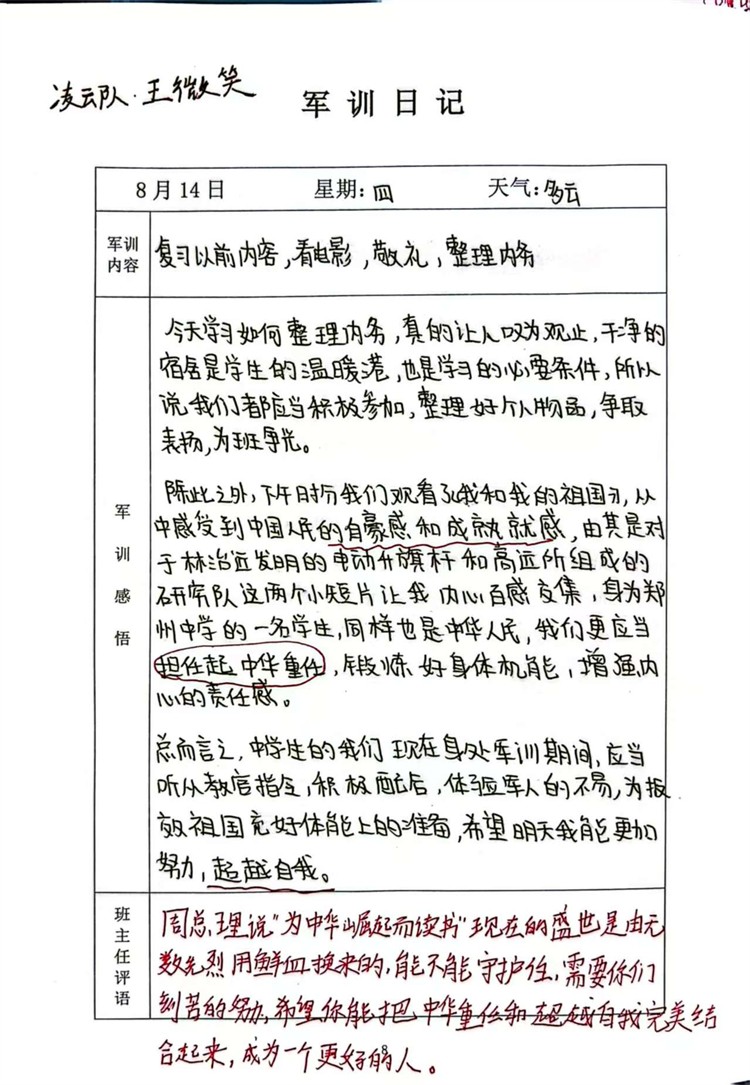 凌云队·王微笑
军训日记
8月14日 星期:四 天气:多云
军训内容
复习以前内容,看电影,敬礼,整理内务
军训感悟
今天学习如何整理内务,真的让人叹为观止,干净的
宿舍是学生的温暖港,也是学习的必要条件,所以
说我们都应当积极参加,整理好个人物品,争取
表扬,为班争光。
除此之外,下午时分我们观看了《我和我的祖国》,从
中感受到中国人民的自豪感和成就感,由其是对
于林治远发明的电动升旗杆和高远所组成的
研究队这两个小短片让我内心百感交集,身为郑
州中学的一名学生,同样也是中华人民,我们更应当
担任起中华重任,锻炼好身体机能,增强内
心的责任感。
总而言之,中学生的我们现在身处军训期间,应当
听从教官指令,积极配合,体验军人的不易,为报
效祖国充好体能上的准备,希望明天我能更加
努力,超越自我。
班主任评语
周总理说"为中华崛起而读书"现在的盛世是由无
数先烈用鲜血换来的,能不能守护住,需要你们
刻苦的努力,希望你能把中华重任和超越自我完美结
合起来,成为一个更好的人。
8